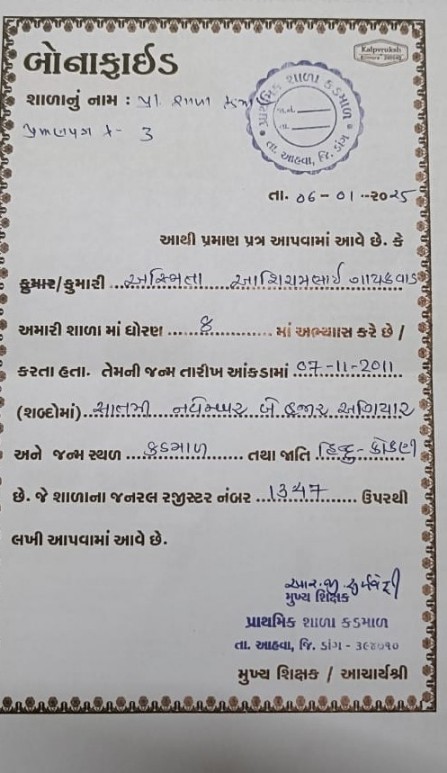 Kalpvruksh
બોનાફાઈડ
શાળાનું નામ : પ્રા. શાળા
પ્રમાણપત્ર ક્ર- 3
પ્રાથમિક શાળા કડમાળ
તા. આહવા, જિ. ડાંગ
તા. 06-01-2025
આથી પ્રમાણ પ્રત્ર આપવામાં આવે છે. કે
કુમાર/કુમારી અસ્મિતા ગાયકવાડ
અમારી શાળા માં ધોરણ 8 માં અભ્યાસ કરે છે /
કરતા હતા. તેમની જન્મ તારીખ આંકડામાં 07-11-2011
(શબ્દોમાં) સાતમી નવેમ્બર બે હજાર અગિયાર
અને જન્મ સ્થળ કડમાળ તથા જાતિ હિન્દુ-કોકણી
છે. જે શાળાના જનરલ રજીસ્ટર નંબર 1347 ઉપરથી
લખી આપવામાં આવે છે.
મુખ્ય શિક્ષક
પ્રાથમિક શાળા કડમાળ
તા. આહવા, જિ. ડાંગ - ૩૯૪૭૧૦
મુખ્ય શિક્ષક / આચાર્યશ્રી